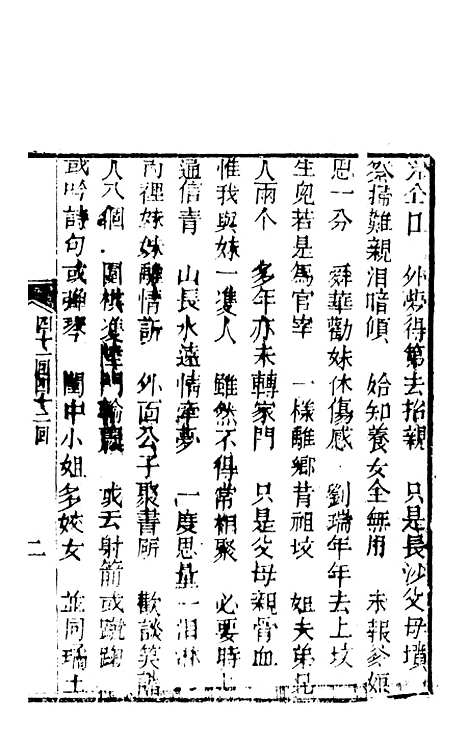 外夢得第去抬親 只是長沙父母墳
祭掃難親泪暗傾 始知養女全無用 未報爹娘
恩一分 舜華勸妹休傷感 劉瑞年年去上坟
生兒若是為官宰 一樣離鄉背祖坟 姐夫弟兄
人兩个 多年亦未轉家門 只是父母親骨血
惟我與妹一雙人 雖然不得常相聚 必要時
通信青 山長水遠情牽夢 一度思量一泪淋
內裡妹妹離情訴 外面公子聚書廝 歡談笑
人八個 圍棋雙陸 或去射箭或跳踘
或吟詩句或彈琴 閨中小姐多姣女 並同瑞士
四十一回四十二回
二